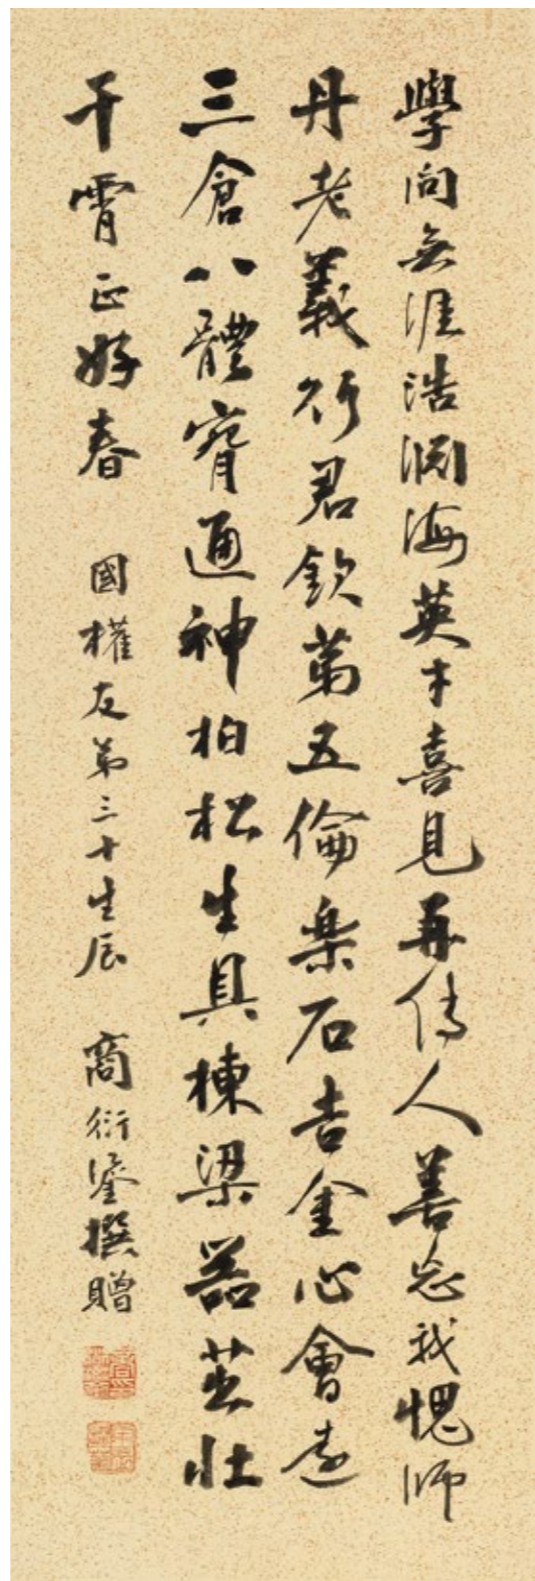 學問無涯浩淵海英才喜見再傳人善忘我愧師
丹老義行君欽第五倫樂石吉金心會遠
三倉八體通神柏松生具棟梁器茁壯
干霄正好春 國權友弟三十生辰 商衍鎏撰贈